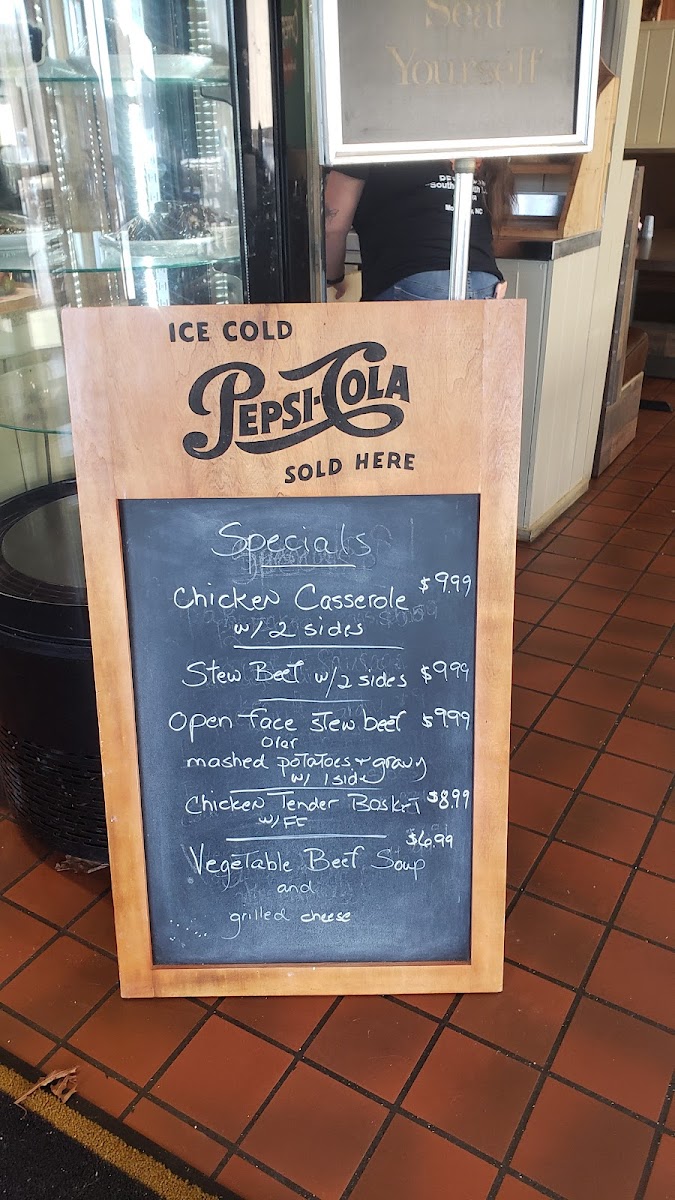 Seat
Yourself
ICE COLD
PEPSI-COLA
SOLD HERE
Specials
Chicken Casserole $9.99
w/ 2 sides
Stew Beef w/2 sides $9.99
Open face stew beef $9.99
over
mashed potatoes + gravy
w/ 1 side
Chicken Tender Basket $8.99
w/ FF
$6.99
Vegetable Beef Soup
and
grilled cheese